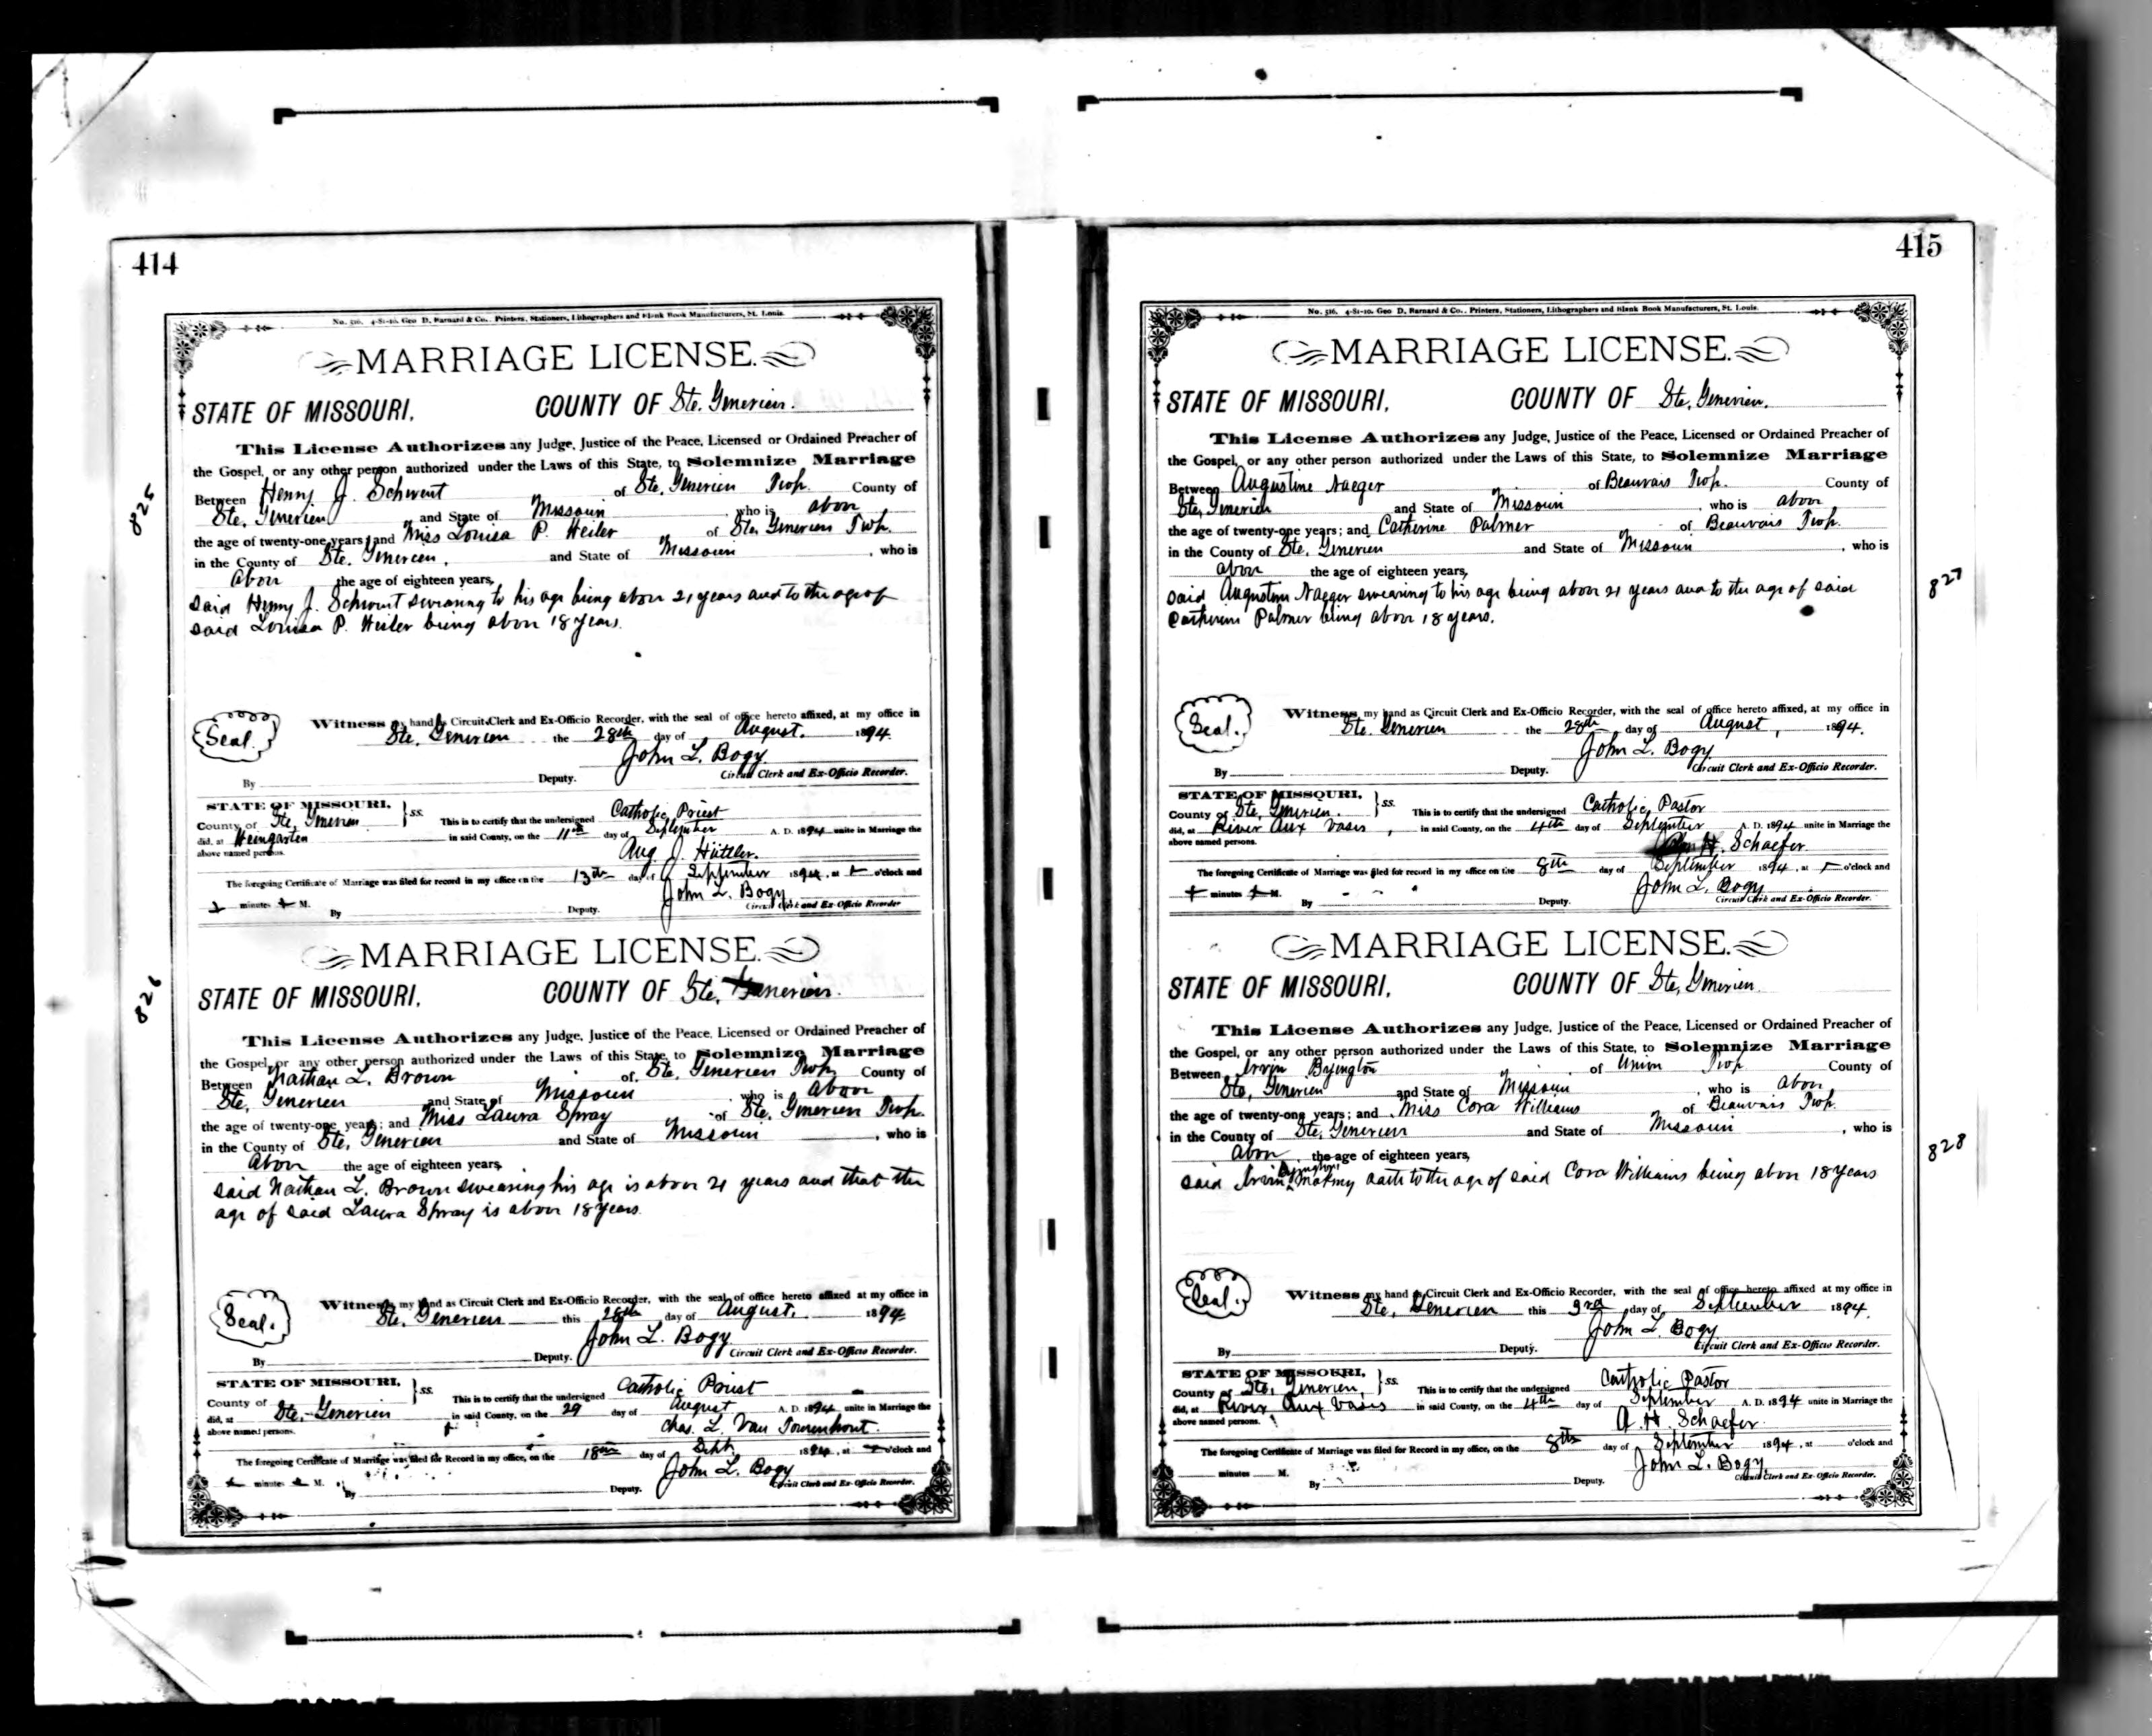 414
No. 516. 4-81-10. Geo D. Barnard & Co., Printers, Stationers, Lithographers and Blank Book Manufacturers, St. Louis.
MARRIAGE LICENSE.
STATE OF MISSOURI, COUNTY OF Ste. Genevieve.
825
This License Authorizes any Judge, Justice of the Peace, Licensed or Ordained Preacher of
the Gospel, or any other person authorized under the Laws of this State, to Solemnize Marriage
Between Henry J. Schwent of Ste. Genevieve Twp. County of
Ste. Genevieve and State of Missouri who is above
the age of twenty-one years; and Miss Louisa P. Heiler of Ste. Genevieve Twp.
in the County of Ste. Genevieve, and State of Missouri, who is
above the age of eighteen years,
said Henry J. Schwent swearing to his age being above 21 years and to the age of
said Louisa P. Heiler being above 18 years.
Seal.
Witness my hand as Circuit Clerk and Ex-Officio Recorder, with the seal of office hereto affixed, at my office in
Ste. Genevieve the 28th day of August. 1894.
John L. Bogy
By Deputy. Circuit Clerk and Ex-Officio Recorder.
STATE OF MISSOURI, ss.
County of Ste. Genevieve This is to certify that the undersigned Catholic Priest
did, at Weingarten in said County, on the 11th day of September A. D. 1894 unite in Marriage the
above named persons.
Aug. J. Hüttler.
The foregoing Certificate of Marriage was filed for record in my office on the 13th day of September 1894, at o'clock and
minutes M. John L. Bogy
By Deputy. Circuit Clerk and Ex-Officio Recorder
826
MARRIAGE LICENSE.
STATE OF MISSOURI, COUNTY OF Ste. Genevieve.
This License Authorizes any Judge, Justice of the Peace, Licensed or Ordained Preacher of
the Gospel, or any other person authorized under the Laws of this State, to Solemnize Marriage
Between Nathan L. Brown of Ste. Genevieve Twp. County of
Ste. Genevieve and State of Missouri who is above
the age of twenty-one years; and Miss Laura Spray of Ste. Genevieve Twp.
in the County of Ste. Genevieve and State of Missouri, who is
above the age of eighteen years,
said Nathan L. Brown swearing his age is above 21 years and that the
age of said Laura Spray is above 18 years.
Seal.
Witness my hand as Circuit Clerk and Ex-Officio Recorder, with the seal of office hereto affixed at my office in
Ste. Genevieve this 28th day of August. 1894.
John L. Bogy
By Deputy. Circuit Clerk and Ex-Officio Recorder.
STATE OF MISSOURI, ss.
County of Ste. Genevieve This is to certify that the undersigned Catholic Priest
did, at in said County, on the 29 day of August A. D. 1894 unite in Marriage the
above named persons.
Chas. L. Van Tourenhout.
The foregoing Certificate of Marriage was filed for Record in my office, on the 18th day of Sept. 1894, at o'clock and
minutes M. John L. Bogy
By Deputy. Circuit Clerk and Ex-Officio Recorder.
415
No. 516. 4-81-10. Geo D. Barnard & Co., Printers, Stationers, Lithographers and Blank Book Manufacturers, St. Louis.
MARRIAGE LICENSE.
STATE OF MISSOURI, COUNTY OF Ste. Genevieve.
This License Authorizes any Judge, Justice of the Peace, Licensed or Ordained Preacher of
the Gospel, or any other person authorized under the Laws of this State, to Solemnize Marriage
Between Augustine Naeger of Beauvais Twp. County of
Ste. Genevieve and State of Missouri, who is above
the age of twenty-one years; and Catherine Palmer of Beauvais Twp.
in the County of Ste. Genevieve and State of Missouri, who is
above the age of eighteen years,
827
said Augustine Naeger swearing to his age being above 21 years and to the age of said
Catherine Palmer being above 18 years.
Seal.
Witness my hand as Circuit Clerk and Ex-Officio Recorder, with the seal of office hereto affixed, at my office in
Ste. Genevieve the 28th day of August, 1894.
John L. Bogy
By Deputy. Circuit Clerk and Ex-Officio Recorder.
STATE OF MISSOURI, ss.
County of Ste. Genevieve. This is to certify that the undersigned Catholic Pastor
did, at River Aux Vases, in said County, on the 4th day of September A. D. 1894 unite in Marriage the
above named persons.
H. Schaefer.
The foregoing Certificate of Marriage was filed for record in my office on the 8th day of September 1894, at o'clock and
minutes M. John L. Bogy
By Deputy. Circuit Clerk and Ex-Officio Recorder.
MARRIAGE LICENSE.
STATE OF MISSOURI, COUNTY OF Ste. Genevieve.
This License Authorizes any Judge, Justice of the Peace, Licensed or Ordained Preacher of
the Gospel, or any other person authorized under the Laws of this State, to Solemnize Marriage
Between Irvin Byington of Union Twp. County of
Ste. Genevieve and State of Missouri, who is above
the age of twenty-one years; and Miss Cora Williams of Beauvais Twp.
in the County of Ste. Genevieve and State of Missouri, who is
above the age of eighteen years,
828
said Irvin Byington making oath to the age of said Cora Williams being above 18 years
Seal.
Witness my hand as Circuit Clerk and Ex-Officio Recorder, with the seal of office hereto affixed at my office in
Ste. Genevieve this 3rd day of September 1894.
John L. Bogy
By Deputy. Circuit Clerk and Ex-Officio Recorder.
STATE OF MISSOURI, ss.
County of Ste. Genevieve, This is to certify that the undersigned Catholic Pastor
did, at River Aux Vases in said County, on the 4th day of September A. D. 1894 unite in Marriage the
above named persons.
A. H. Schaefer.
The foregoing Certificate of Marriage was filed for Record in my office, on the 8th day of September 1894, at o'clock and
minutes M. John L. Bogy
By Deputy. Circuit Clerk and Ex-Officio Recorder.